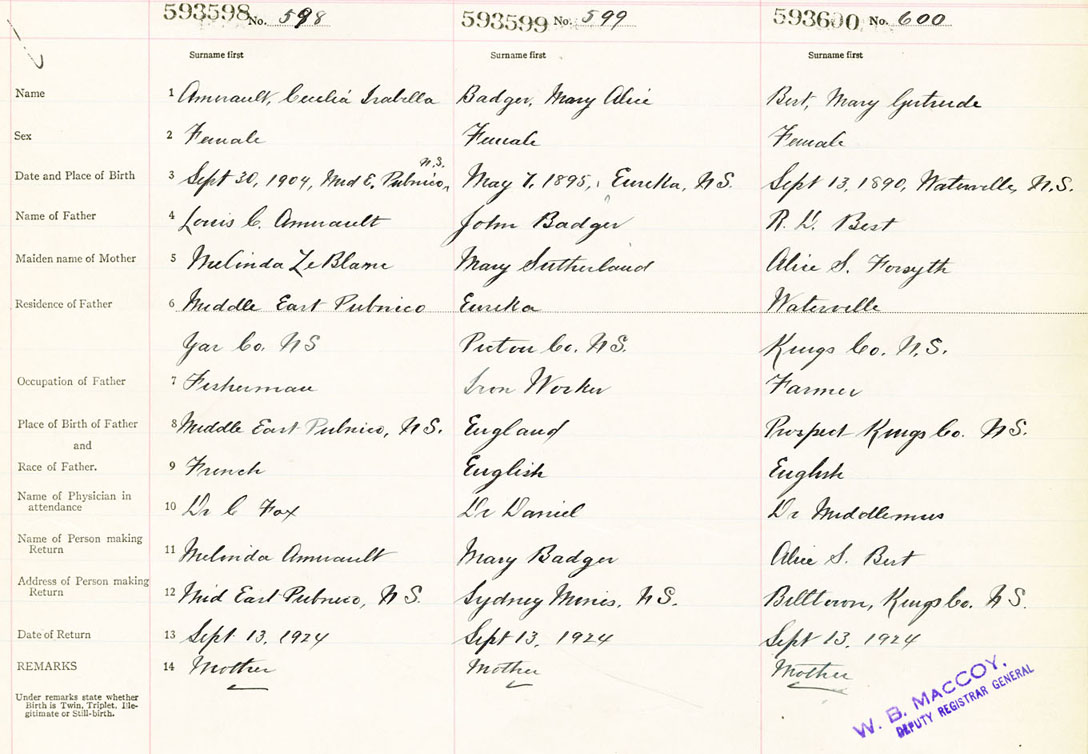 593598 No. 598 593599 No. 599 593600 No. 600
Surname first Surname first Surname first
Name 1 Amirault, Cecelia Isabella Badger, Mary Alice Best, Mary Gertrude
Sex 2 Female Female Female
N.S.
Date and Place of Birth 3 Sept 30, 1904, Mid E. Pubnico, May 7, 1895, Eureka, N.S. Sept 13, 1890, Waterville, N.S.
Name of Father 4 Louis C. Amirault John Badger R. D. Best
Maiden name of Mother 5 Melinda LeBlanc Mary Sutherland Alice S. Forsyth
Residence of Father 6 Middle East Pubnico Eureka Waterville
Yar Co. NS Pictou Co. NS. Kings Co. N.S.
Occupation of Father 7 Fisherman Iron Worker Farmer
Place of Birth of Father 8 Middle East Pubnico, N.S. England Prospect Kings Co. NS.
and
Race of Father. 9 French English English
Name of Physician in
attendance 10 Dr C Fox Dr Daniel Dr Middlemus
Name of Person making
Return 11 Melinda Amirault Mary Badger Alice S. Best
Address of Person making
Return 12 Mid East Pubnico, NS. Sydney Mines, NS. Billtown, Kings Co. NS.
Date of Return 13 Sept. 13, 1924 Sept 13, 1924 Sept 13, 1924
REMARKS 14 Mother Mother Mother
Under remarks state whether
Birth is Twin, Triplet, Ille-
gitimate or Still-birth.
W. B. MACCOY,
DEPUTY REGISTRAR GENERAL